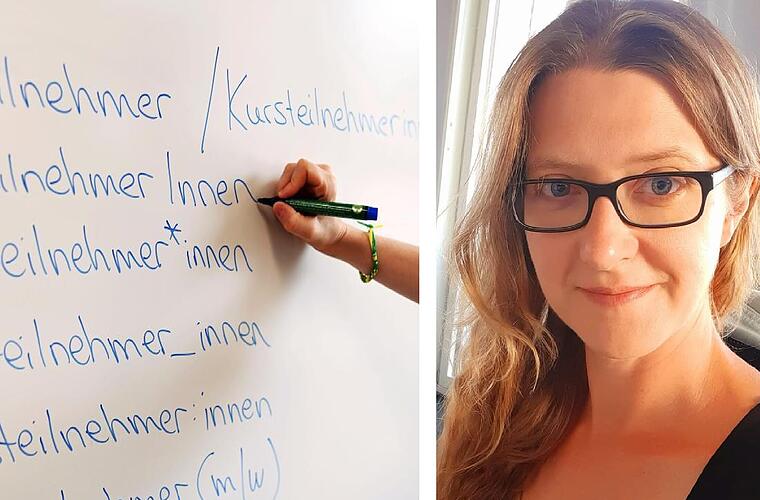 ilnehmer / Kursteilnehmerin
ilnehmer Innen
eilnehmer*innen
eilnehmer_innen
teilnehmer:innen
nehmer (m/w)